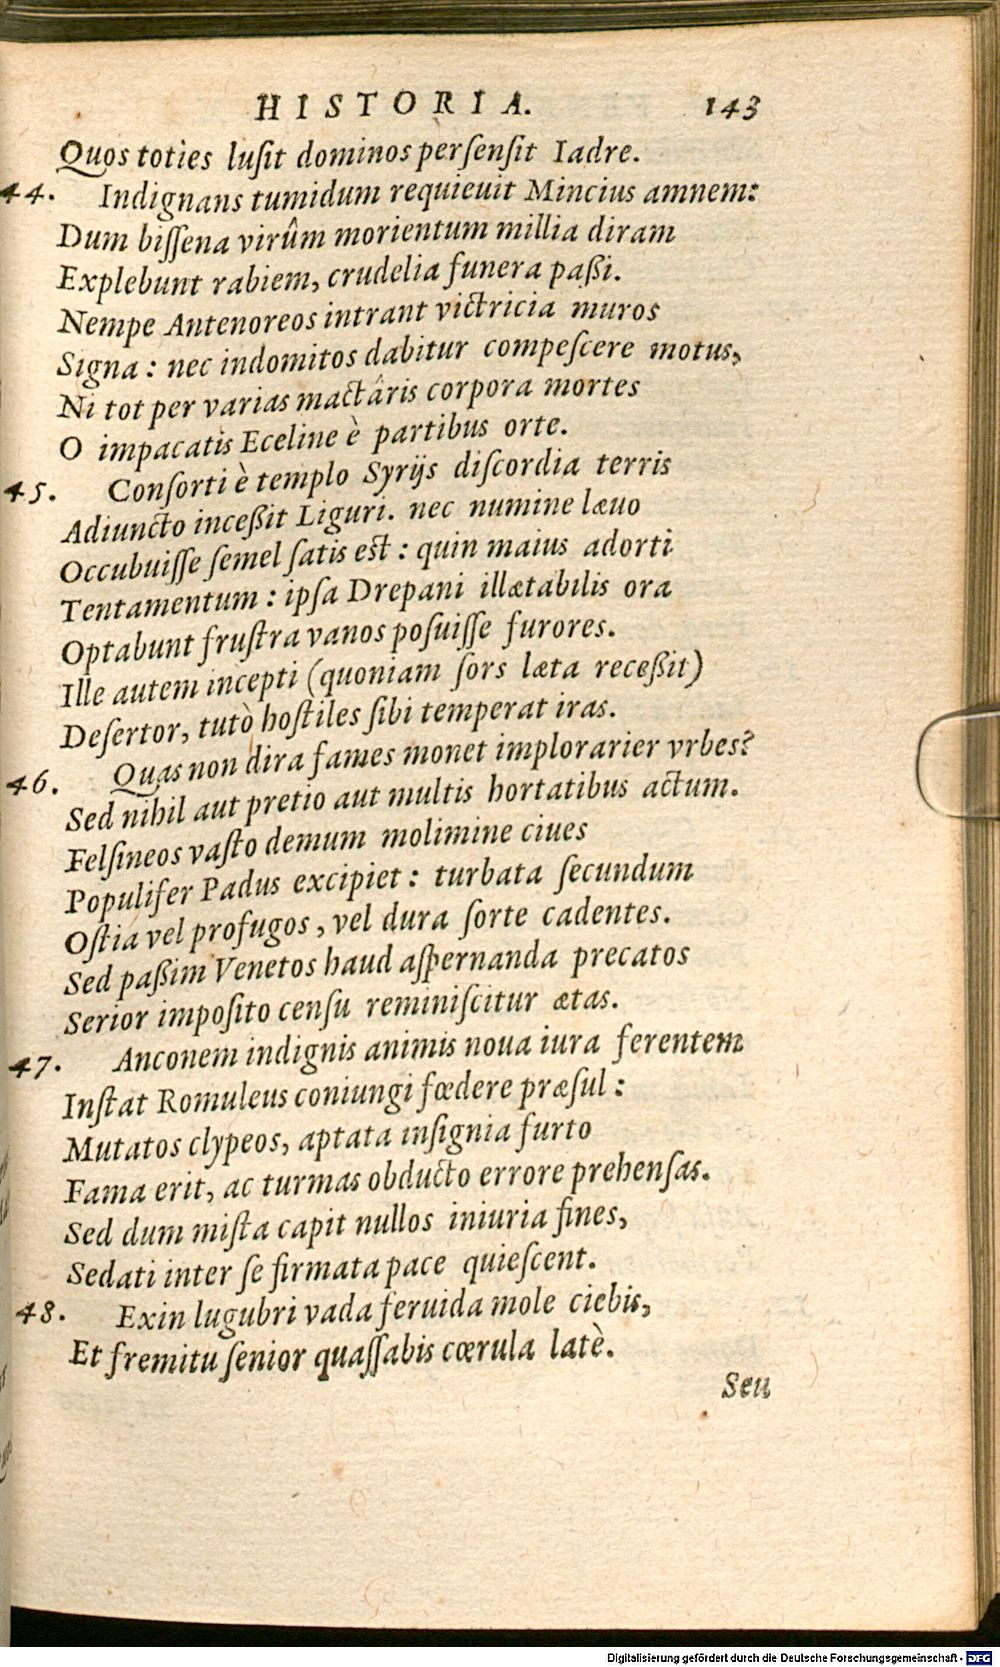 HISTORIA. 143
Quos toties luſit dominos perſenſit Iadre.
44. Indignans tumidum requieuit Mincius amnem:
Dum biſſena virûm morientum millia diram
Explebunt rabiem, crudelia funera paßi.
Nempe Antenoreos intrant victricia muros
Signa : nec indomitos dabitur compeſcere motus,
Ni tot per varias mactâris corpora mortes
O impacatis Eceline è partibus orte.
45. Conſorti è templo Syrijs diſcordia terris
Adiuncto inceßit Liguri. nec numine læuo
Occubuiſſe ſemel ſatis est : quin maius adorti
Tentamentum : ipſa Drepani illætabilis ora
Optabunt fruſtra vanos poſuiſſe furores.
Ille autem incepti (quoniam ſors læta receßit)
Deſertor, tutò hoſtiles ſibi temperat iras.
46. Quas non dira fames monet implorarier vrbes?
Sed nihil aut pretio aut multis hortatibus actum.
Felſineos vaſto demum molimine ciues
Populifer Padus excipiet : turbata ſecundum
Oſtia vel profugos, vel dura ſorte cadentes.
Sed paßim Venetos haud aſpernanda precatos
Serior impoſito cenſu reminiſcitur ætas.
47. Anconem indignis animis noua iura ferentem
Inſtat Romuleus coniungi fœdere præſul :
Mutatos clypeos, aptata inſignia furto
Fama erit, ac turmas obducto errore prehenſas.
Sed dum miſta capit nullos iniuria fines,
Sedati inter ſe firmata pace quieſcent.
48. Exin lugubri vada feruida mole ciebis,
Et fremitu ſenior quaſſabis cœrula latè.
Seu
Digitalisierung gefördert durch die Deutsche Forschungsgemeinschaft - DFG